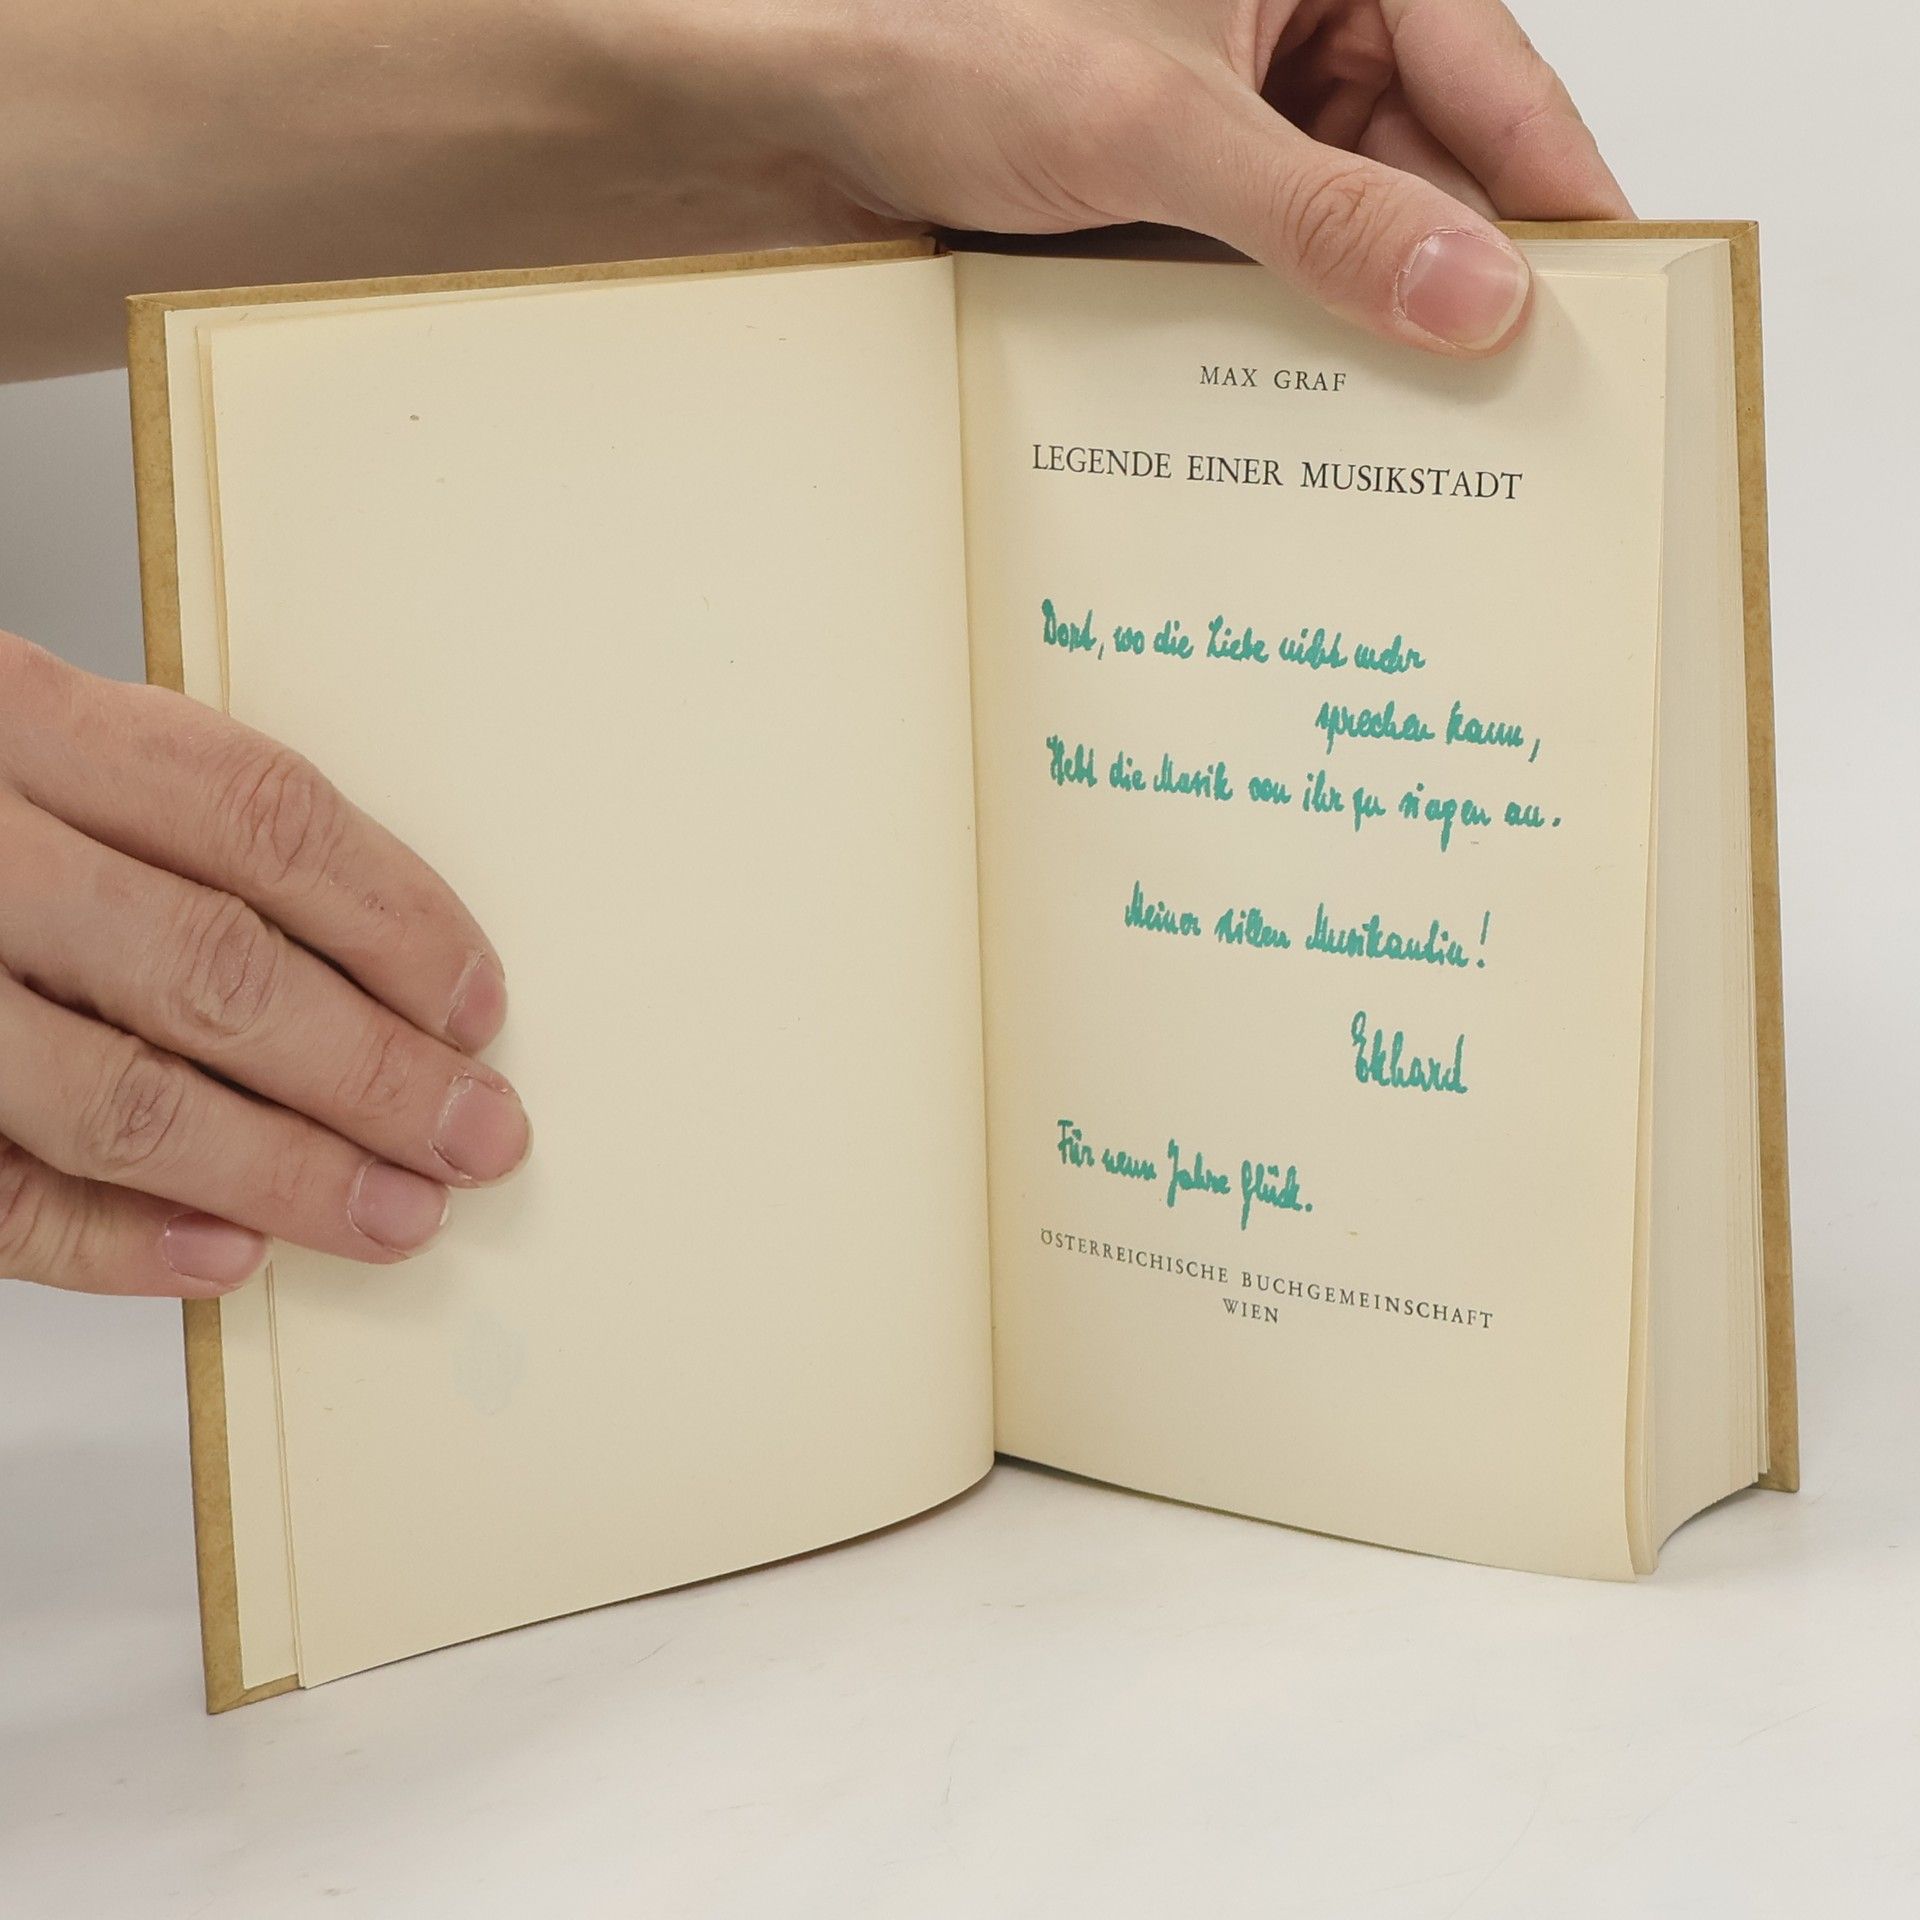 MAX GRAF
LEGENDE EINER MUSIKSTADT
Dort, wo die Liebe nicht mehr
sprechen kann,
Hebt die Musik von ihr zu singen an.
Meiner stillen Musikantin!
Ekhard
Für neun Jahre Glück.
ÖSTERREICHISCHE BUCHGEMEINSCHAFT
WIEN